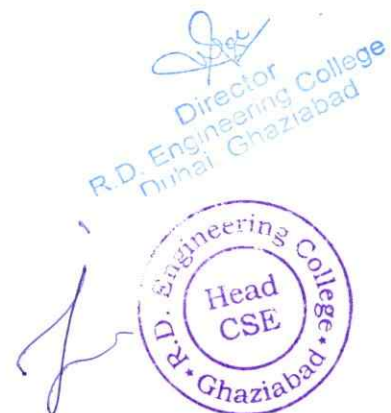 Director
R.D. Engineering College
Duhai, Ghaziabad
R.D. Engineering College
Ghaziabad
Head
CSE